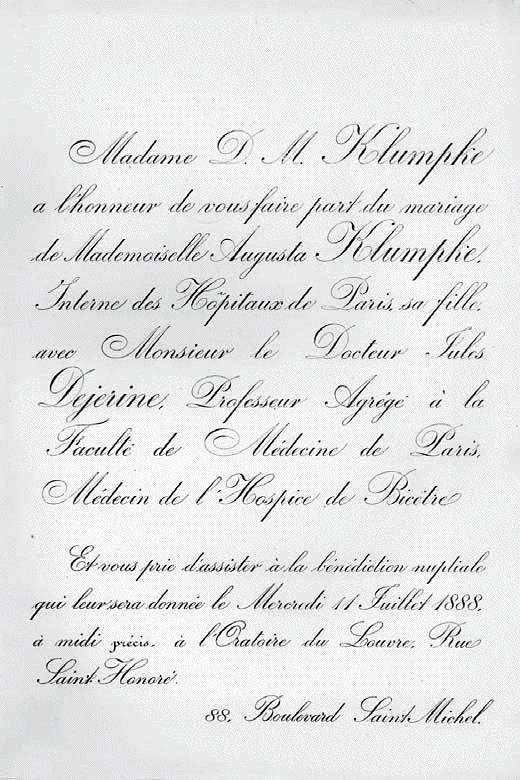 Madame D. M. Klumpke
a l'honneur de vous faire part du mariage
de Mademoiselle Augusta Klumpke,
Interne des Hôpitaux de Paris, sa fille,
avec Monsieur le Docteur Jules
Dejerine, Professeur Agrégé à la
Faculté de Médecine de Paris,
Médecin de l'Hospice de Bicêtre
Et vous prie d'assister à la bénédiction nuptiale
qui leur sera donnée le Mercredi 11 Juillet 1888,
à midi précis, à l'Oratoire du Louvre, Rue
Saint Honoré.
88, Boulevard Saint Michel.